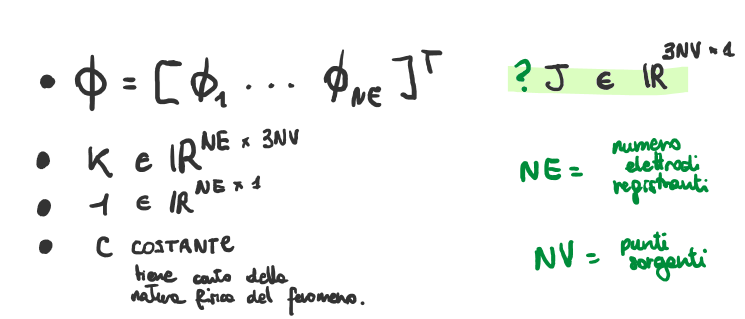 • ϕ = [ ϕ₁ ... ϕ_NE ]ᵀ
? J ∈ ℝ^(3NV × 1)
• K ∈ ℝ^(NE × 3NV)
• 1 ∈ ℝ^(NE × 1)
• C COSTANTE
tiene conto della
natura fisica del fenomeno.
NE = numero
elettrodi
registranti
NV = punti
sorgenti